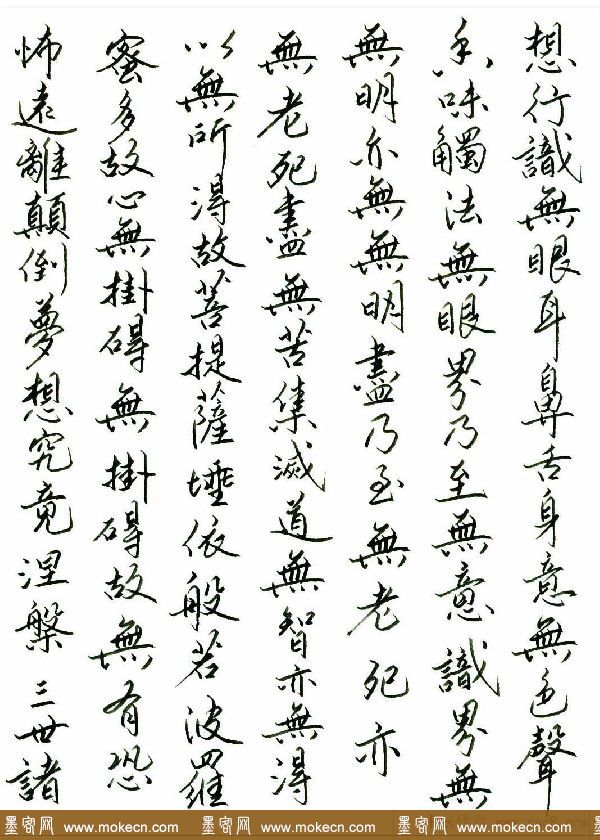 想行識無眼耳鼻舌身意無色聲
香味觸法無眼界乃至無意識界無
無明亦無無明盡乃至無老死亦
無老死盡無苦集滅道無智亦無得
以無所得故菩提薩埵依般若波羅
蜜多故心無掛礙無掛礙故無有恐
怖遠離顛倒夢想究竟涅槃三世諸
墨客网 www.mokecn.com 墨客网 www.mokecn.com 墨客网 www.mokecn.com